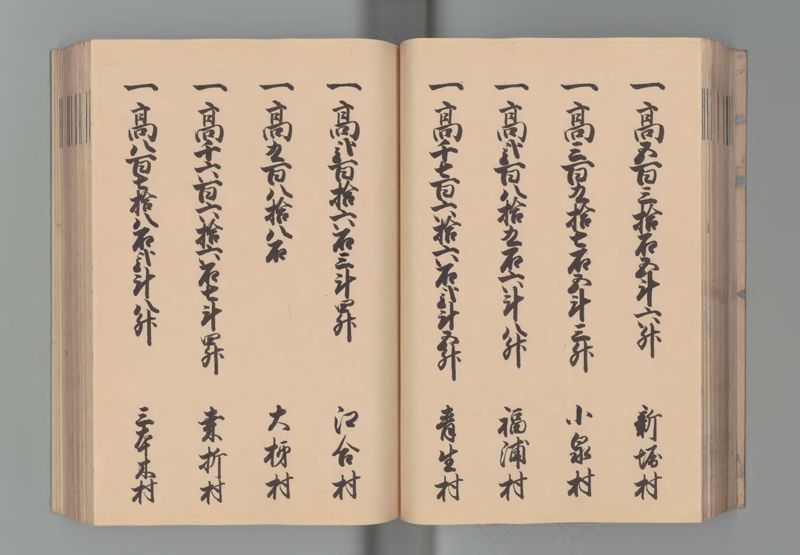 一高五百三拾石五斗六升 新堀村
一高三百九拾七石五斗三升 小泉村
一高弐百八拾五石六斗八升 福浦村
一高千七百六拾六石弐斗五升 青生村
一高弐百拾六石三斗四升 江合村
一高五百八拾八石 大柳村
一高千六百六拾六石七斗四升 素折村
一高八百七拾八石弐斗八升 三本木村